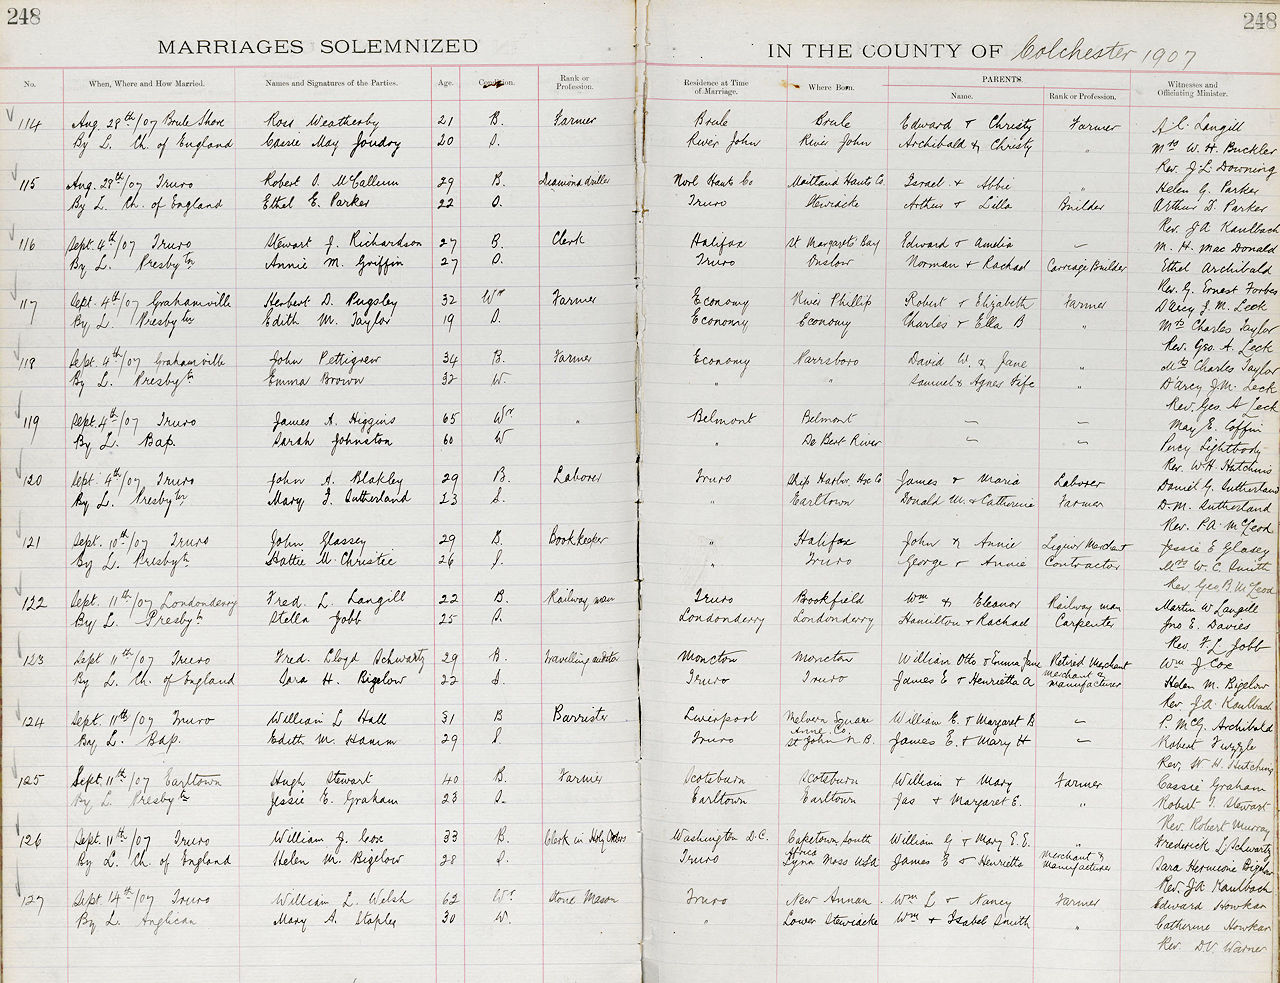 248
248
MARRIAGES SOLEMNIZED IN THE COUNTY OF Colchester 1907
No. When, Where and How Married. Names and Signatures of the Parties. Age. Condition. Rank or Profession. Residence at Time of Marriage. Where Born. PARENTS. Name. Rank or Profession. Witnesses and Officiating Minister.
114 Aug 28th/07 Brule Shore Ross Weatherby 21 B. Farmer Brule Brule Edward & Christy Farmer A C. Langill
By L. Ch. of England Cassie May Joudry 20 S. River John River John Archibald & Christy " Mrs W. H. Buckler
Rev. J L Downing
115 Aug. 28th/07 Truro Robert O. McCallum 29 B. Diamond driller Noel Hants Co Maitland Hants Co. Israel & Abbie " Helen G. Parker
By L. Ch. of England Ethel E. Parker 22 S. Truro Stewiacke Arthur & Lilla Builder Arthur D. Parker
Rev. J A Kaulbach
116 Sept. 4th/07 Truro Stewart J. Richardson 27 B. Clerk Halifax St Margarets Bay Edward & Amelia — M. H. MacDonald
By L. Presbytn Annie M. Griffin 27 S. Truro Onslow Norman & Rachael Carriage Builder Ethel Archibald
Rev. G. Ernest Forbes
117 Sept. 4th/07 Grahamville Herbert D. Pugsley 32 Wr Farmer Economy River Phillip Robert & Elizabeth Farmer D'Arcy J. M. Leck
By L. Presbytn Edith M. Taylor 19 S. Economy Economy Charles & Ella B " Mrs Charles Taylor
Rev. Geo. A. Leck
118 Sept. 4th/07 Grahamville John Pettigrew 34 B. Farmer Economy Parrsboro David W. & Jane " Mrs Charles Taylor
By L. Presbytn Emma Brown 32 W. " " Samuel & Agnes Fife " D'Arcy J.M. Leck
Rev. Geo. A Leck
119 Sept. 4th/07 Truro James A. Higgins 65 Wr " Belmont Belmont — — May E. Coffin
By L. Bap. Sarah Johnston 60 W " De Bert River — — Percy Lightbody
Rev. W H. Hutchins
120 Sept. 4th/07 Truro John A. Blakley 29 B. Laborer Truro Ship Harbor, Hx Co James & Maria Laborer Daniel G. Sutherland
By L. Presbytn Mary J. Sutherland 23 S. " Earltown Donald M. & Catherine Farmer D. M. Sutherland
Rev. P.A. McLeod
121 Sept. 10th/07 Truro John Glassey 29 B. Book Keeper " Halifax John & Annie Liquor Merchant Jessie E Glasey
By L. Presbytn Hattie M. Christie 26 S. " Truro George & Annie Contractor Mrs W. C. Smith
Rev Geo B. McLeod
122 Sept. 11th/07 Londonderry Fred. L. Langill 22 B. Railway man Truro Brookfield Wm & Eleanor Railway man Martin W Langill
By L. Presbytn Stella Jobb 25 S. Londonderry Londonderry Hamilton & Rachael Carpenter Jno E. Davies
Rev. F. L Jobb
123 Sept 11th/07 Truro Fred. Lloyd Schwartz 29 B. Travelling auditor Moncton Moncton William Otto & Emma Jane Retired Merchant Wm J Cox
By L. Ch. of England Sara H. Bigelow 22 S. Truro Truro James E & Henrietta A Merchant & Manufacturer Helen M. Bigelow
Rev. J A Kaulbach
124 Sept. 11th/07 Truro William L Hall 31 B Barrister Liverpool Melvern Square Anne. Co. William E. & Margaret B — P. McG. Archibald
By L. Bap. Edith M. Hamm 29 S. Truro St John N.B. James E. & Mary H — Robert Tuzzle
Rev. W H. Hutchins
125 Sept. 11th/07 Earltown Hugh Stewart 40 B. Farmer Scotsburn Scotsburn William & Mary Farmer Cassie Graham
By L. Presbytn Jessie E. Graham 23 S. Earltown Earltown Jas & Margaret E. " Robert J. Stewart
Rev. Robert Murray
126 Sept 11th/07 Truro William J. Cox 33 B. Clerk in Holy Orders Washington D.C. Capetown South Africa William G & Mary E. E. " Frederick L Schwartz
By L. Ch. of England Helen M. Bigelow 28 S. Truro Lynn Mass USA James E & Henrietta Merchant & Manufacturer Sara Hermione Bigelow
Rev. J A Kaulbach
127 Sept 14th/07 Truro William L. Welsh 62 Wr Stone Mason Truro New Annan Wm L & Nancy Farmer Edward Howkar
By L. Anglican Mary A. Staples 30 W. " Lower Stewiacke Wm & Isabel Smith " Catherine Howkar
Rev. D.V. Warner